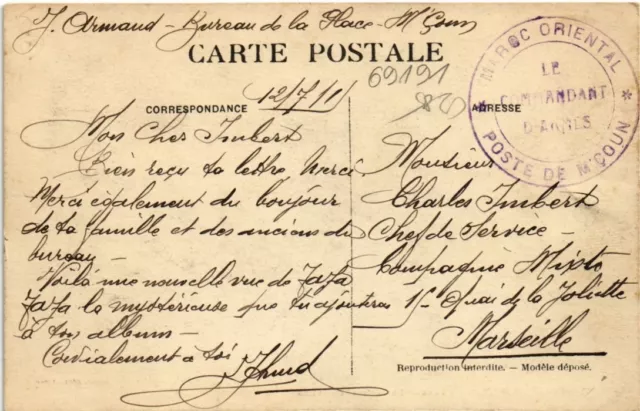 J. Armand - Bureau de la Place - M'Çoun
CARTE POSTALE
69191
MAROC ORIENTAL
LE
COMMANDANT
D'ARMES
POSTE DE M'ÇOUN
CORRESPONDANCE
12/7/11
ADRESSE
Mon cher Imbert
Bien reçu ta lettre, merci
Merci également du bonjour
de ta famille et des anciens du
bureau -
Voilà une nouvelle vue de Taza
Taza la mystérieuse que tu ajouteras
à ton album -
Cordialement à toi
Monsieur
Charles Imbert
Chef de Service -
Compagnie Mixte
Quai de la Joliette
Marseille
Reproduction interdite. — Modèle déposé.